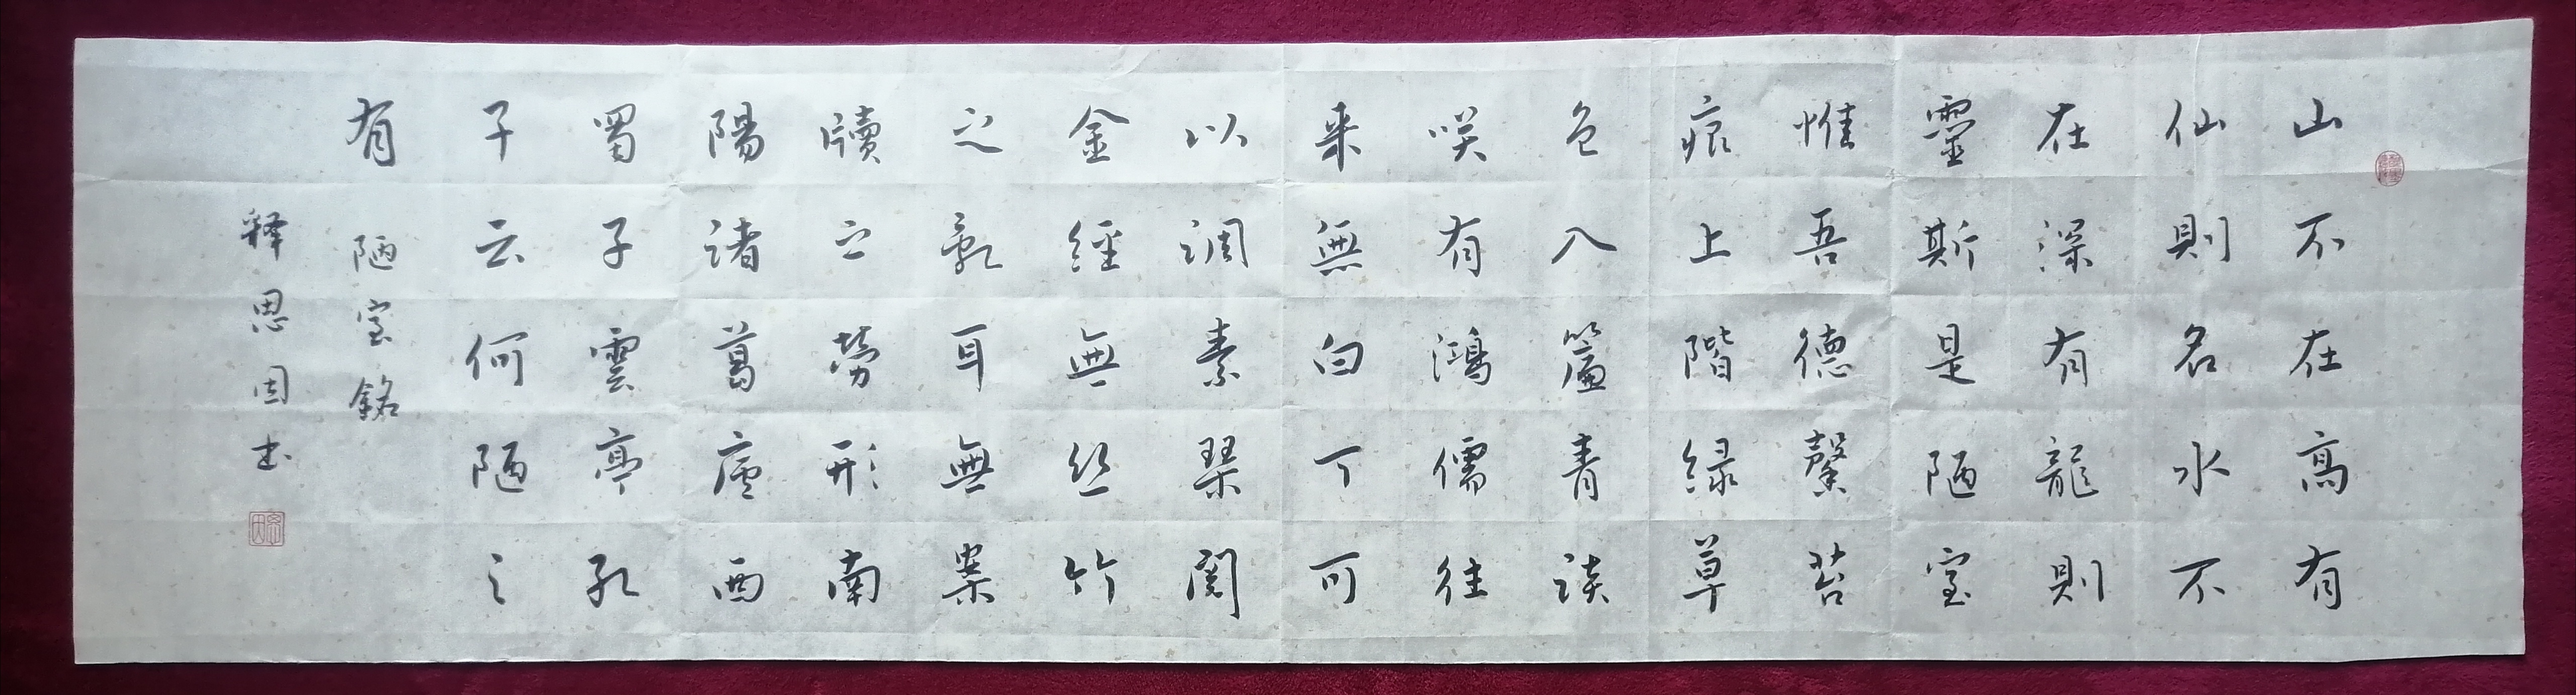 山不在高有
仙則名水不
在深有龍則
靈斯是陋室
惟吾德馨苔
痕上階緑草
色入簾青談
咲有鴻儒往
来無白丁可
以調素琹閱
金經無丝竹
之亂耳無案
牘之勞形南
陽諸葛廬西
蜀子雲亭孔
子云何陋之
有 陋室銘
释思因书